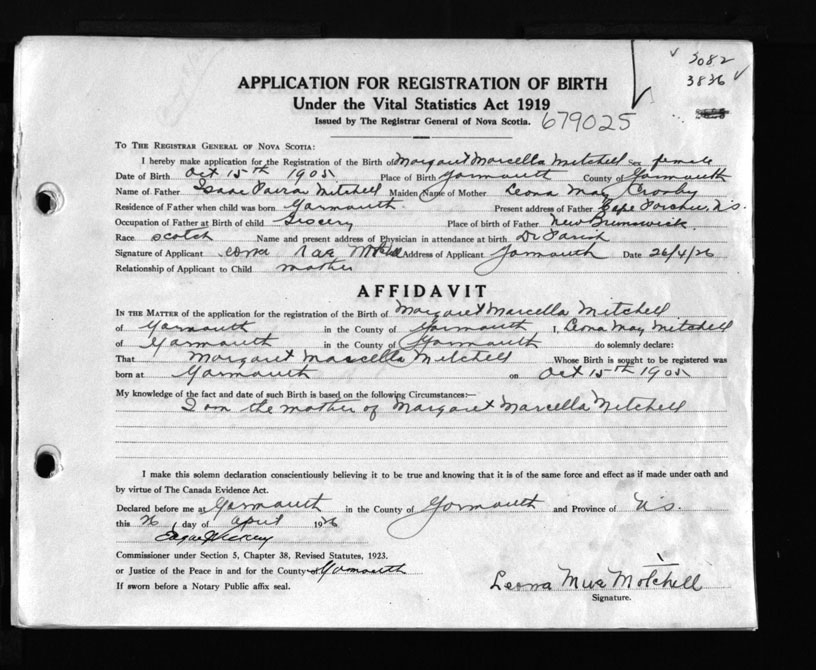 3082
3836
APPLICATION FOR REGISTRATION OF BIRTH
Under the Vital Statistics Act 1919
Issued by The Registrar General of Nova Scotia.
679025
TO THE REGISTRAR GENERAL OF NOVA SCOTIA:
I hereby make application for the Registration of the Birth of Margaret Marcella Mitchell Sex female
Date of Birth Oct 15th 1905 Place of Birth Yarmouth County of Yarmouth
Name of Father Isaac Mitchell Maiden Name of Mother Leona May Crosby
Residence of Father when child was born Yarmouth Present address of Father N.S.
Occupation of Father at Birth of child Grocery Place of birth of Father New Brunswick
Race scotch Name and present address of Physician in attendance at birth Dr
Signature of Applicant Address of Applicant Yarmouth Date 26/4/26
Relationship of Applicant to Child mother
AFFIDAVIT
IN THE MATTER of the application for the registration of the Birth of Margaret Marcella Mitchell
of Yarmouth in the County of Yarmouth I, Leona May Mitchell
of Yarmouth in the County of Yarmouth do solemnly declare:
That Margaret Marcella Mitchell Whose Birth is sought to be registered was
born at Yarmouth on Oct 15th 1905
My knowledge of the fact and date of such Birth is based on the following Circumstances:—
I am the mother of Margaret Marcella Mitchell
I make this solemn declaration conscientiously believing it to be true and knowing that it is of the same force and effect as if made under oath and
by virtue of The Canada Evidence Act.
Declared before me at Yarmouth in the County of Yarmouth and Province of N.S.
this 26 day of april 1926
Commissioner under Section 5, Chapter 38, Revised Statutes, 1923.
or Justice of the Peace in and for the County of Yarmouth
If sworn before a Notary Public affix seal.
Leona Mitchell
Signature.